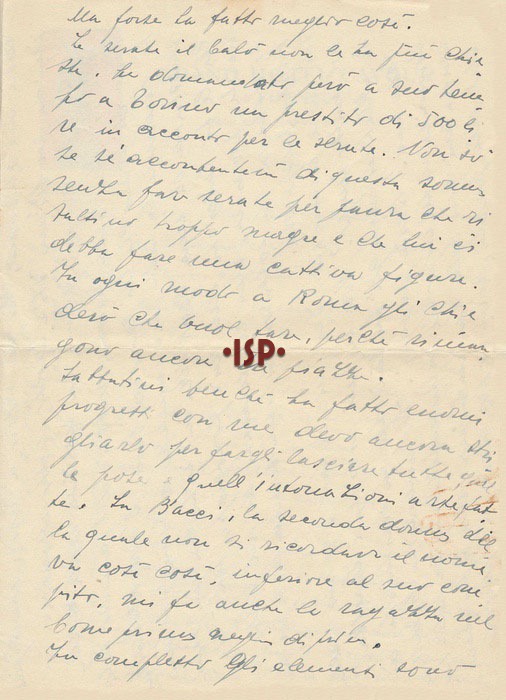 Ma forse ha fatto meglio così.
Le serate il Calò non le ha più chie
ste, ha domandato però a suo tem
po a Torino un prestito di 500 li
re in acconto per le serate. Non so
se s'accontenterà di questa somma
senza fare serate per paura che ri
sultino troppo magre e che lui ci
debba fare una cattiva figura.
In ogni modo a Roma gli chie
derò che vuol fare, perché riman
gono ancora piazze.
•ISP•
benchè ha fatto enormi
progressi con me devo ancora
gliarlo per fargli lasciare tutte
le pose e quell'intonazioni artefat
te. La Bacci, la seconda donna del
la quale non si ricordava il nome
va così così, inferiore al suo com
pito, mi fa anche la ragazza nel
Come prima meglio di prima.
In complesso gli elementi sono